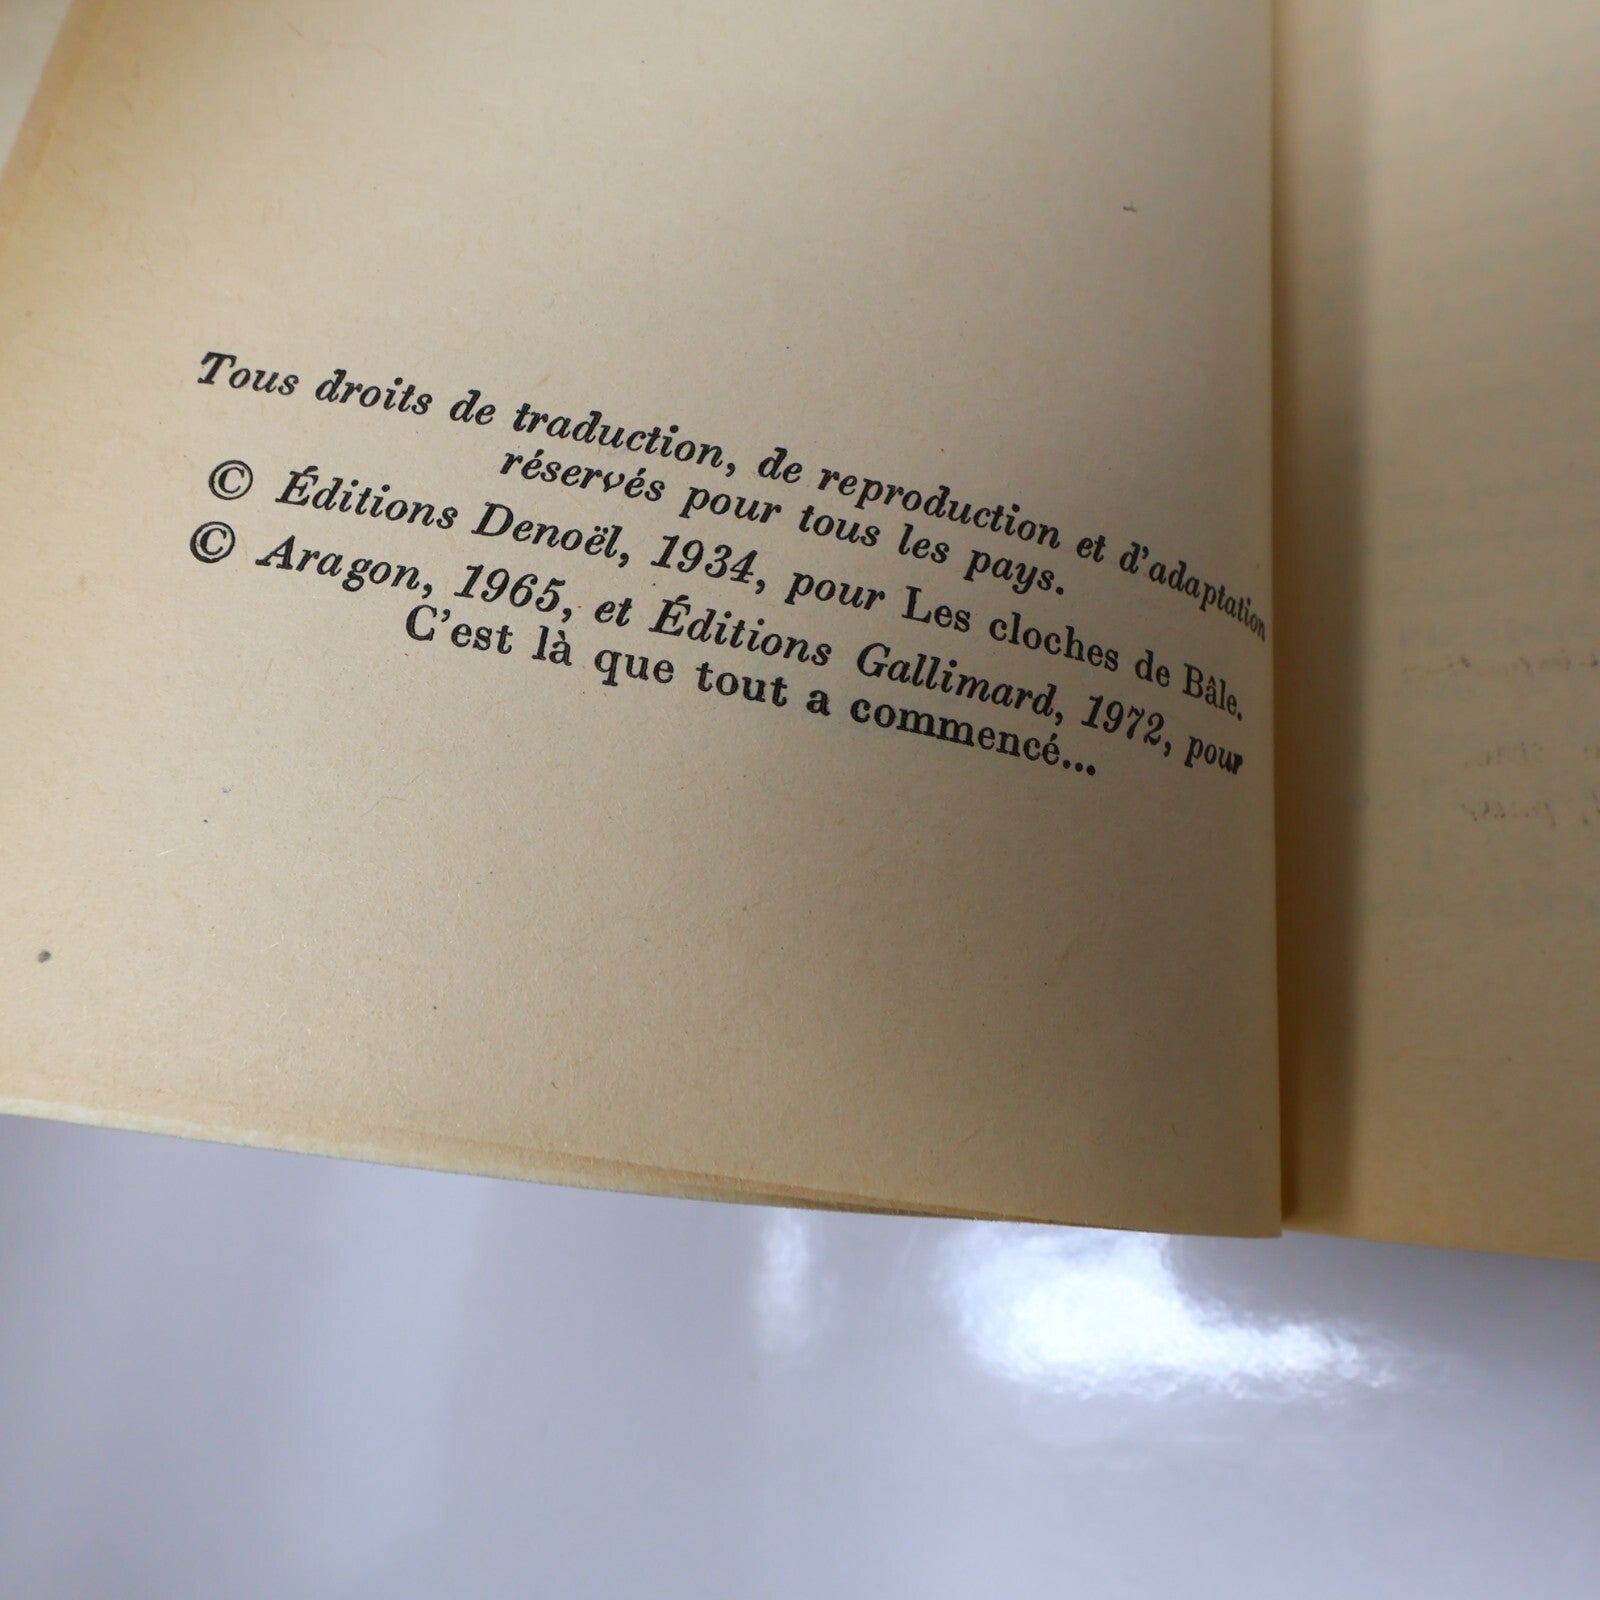 Tous droits de traduction, de reproduction et d'adaptation
réservés pour tous les pays.
© Éditions Denoël, 1934, pour Les cloches de Bâle.
© Aragon, 1965, et Éditions Gallimard, 1972, pour
C'est là que tout a commencé...